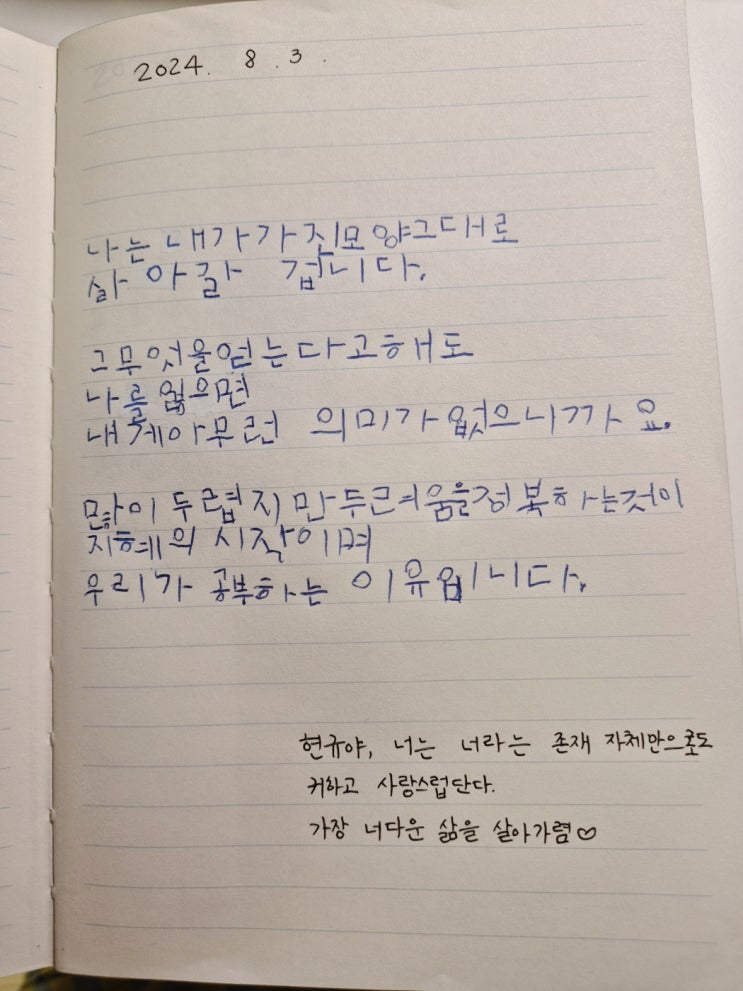 2024. 8. 3.
나는 내가 가진모양그대로
살아갈 겁니다.
그무엇을얻는다고해도
나를 잃으면
내게아무런 의미가 없으니까요.
많이 두렵지만 두려움을정복하는것이
지혜의 시작이며
우리가 공부하는 이유입니다.
현규야, 너는 너라는 존재 자체만으로도
귀하고 사랑스럽단다.
가장 너다운 삶을 살아가렴♡